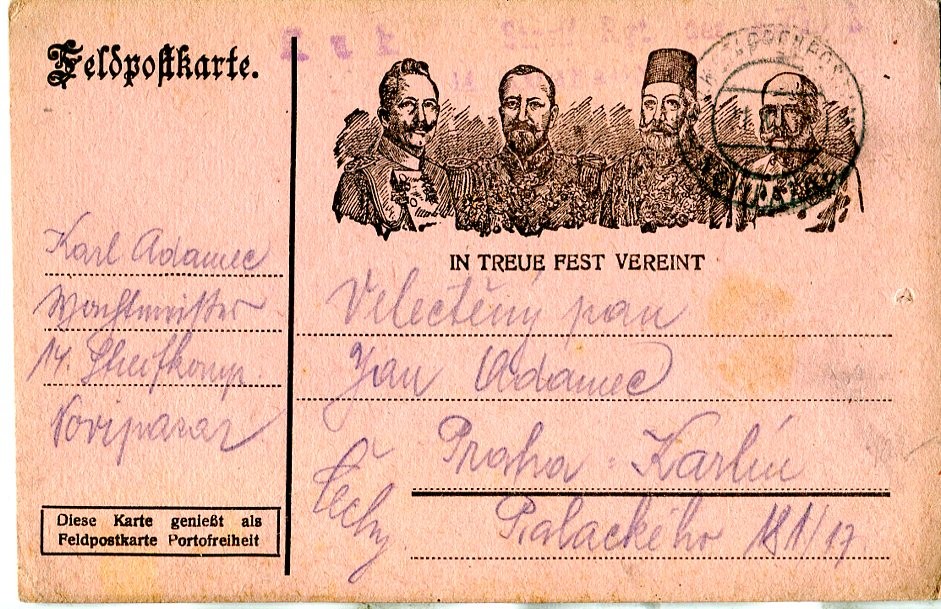 Feldpostkarte.
IN TREUE FEST VEREINT
Karl Adamec
Wachtmeister
14. Streifkomp.
Novipazar
Velectěný pan
Jan Adamec
Praha - Karlín
Palackého 181/17
Čechy
Diese Karte genießt als
Feldpostkarte Portofreiheit